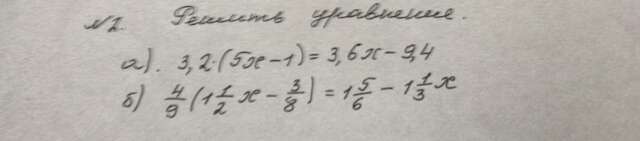 №2. Решить уравнение.
а). 3,2·(5x-1)=3,6x-9,4
б) 4/9(1 1/2 x - 3/8)=1 5/6 - 1 1/3 x